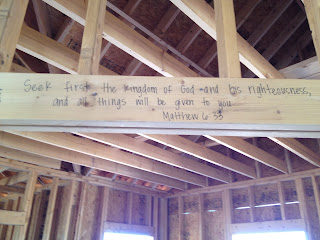 Seek first the kingdom of God and his righteousness,
and all things will be given to you
Matthew 6:33